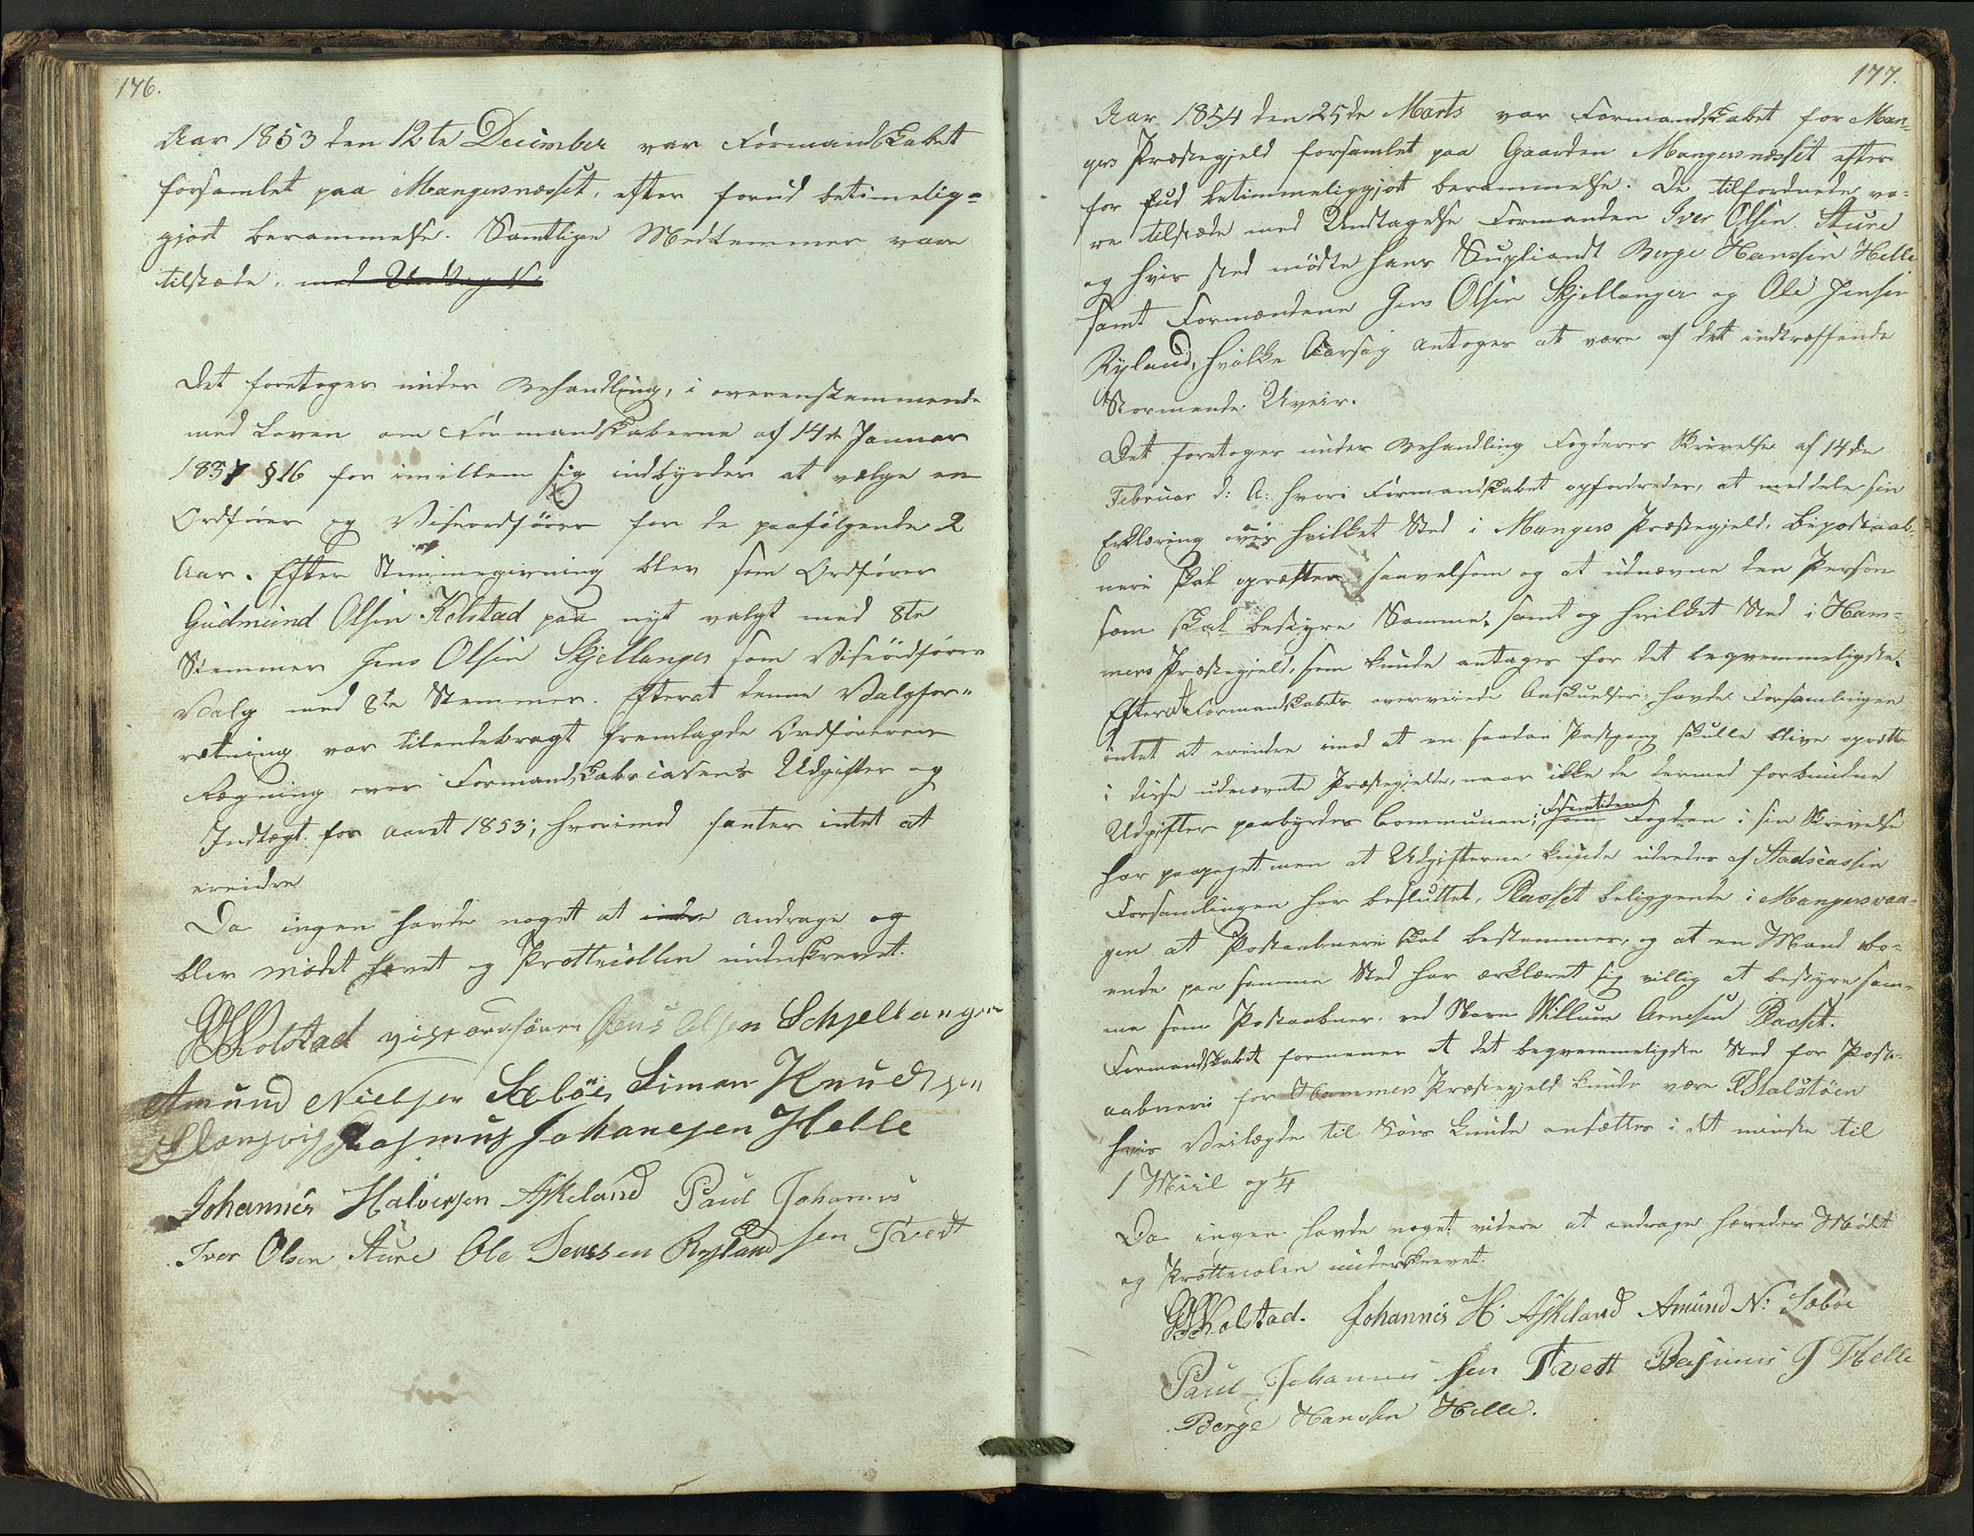 176.
Aar 1853 den 12te December var Formandskabet
forsamlet paa Mangersnæsset, efter forud betimelig-
gjort berammelse. Samtlige Medlemmer vare
tilstæde. med Undtagelse
Det foretoges under Behandling, i overenstemmende
med Loven om Formandskaberne af 14de Januar
1837 § 16 for imillem sig indbyrdes at vælge en
Ordfører og Viseordfører for de paafølgende 2
Aar. Efter Stemmegivning blev som Ordfører
Gudmund Olsen Kolstad paa nyt valgt med 8te
Stemmer Jens Olsen Skjellanger som Viseordfører
Valg med 8te Stemmer. Efterat denne Valgfor-
rætning var tilendebragt fremlagde Ordføreren
Regning over Formandskabscasens Udgifter og
Indtægt for aaret 1853; hvorimod fantes intet at
erindre
Da ingen havde noget at andrage og
blev mødet hævet og Prottecollen underskrevet.
GOKolstad viseordfører Jens Olsen Schjellanger
Amund Nielsen Sæbøe Simon Knudsen
Rasmus Johanesen Helle
Johannes Halversen Askeland Paul Johannes
Iver Olsen Sture Ole Jenssen Ryland sen Tvedt
177.
Aar 1854 den 25de Marts var Formandskabet for Man-
gers Præstegjeld forsamlet paa Gaarden Mangersnæsset efter
for ud betimmeliggjort berammelse. De tilfordnede va-
re tilstæde med Undtagelse Formanden Iver Olsen Sture
og hvis sted mødte hans Supliandt Berge Hanssen Helle
samt Formændene Jens Olsen Skjellanger og Ole Jensen
Ryland, hvilke Aarsag antoges at være af det indtræffende
Stormende Uveir.
Det foretoges under Behandling Fogderes Skrivelse af 14de
Februar d: A: hvori Formandskabet opfordredes, at meddele sin
Erklæring over hvilket Sted i Mangers Præstegjeld, Bipostaab-
neri skal oprættes saavelsom og at udnævne den Person
som skal bestyre Samme, samt og hvilket Sted i Ham-
mers Præstegjeld, som kunde antages for det beqvemmeligste.
Efterat Formandskabets overveiede Anskuelser, havde Forsamlingen
intet at erindre imod at en saadan Postgang skulle blive oprette
i disse udnævnte Præstegjelde, naar ikke de dermed forbundne
Udgifter paabyrdes Communen; som Fogden i sin Skrivelse
har paapeget men at Udgifterne kunde udredes af Stadscassen
Forsamlingen har besluttet, Plasset beliggende i Mangersvaa-
gen at Postaabneri skal bestemmes, og at en Mand bo-
ende paa samme Sted har erklæret sig villig at bestyre sam-
me som Postaabner, ved Navn Willum Arnesen Plasset.
Formandskabet formener at det beqvemmeligste Sted for Post-
aabneri for Hammers Præstegjeld kunde være Alstøen
hvis Veilægde til Søes kunde ansættes i det mindste til
1 Miil og 1/4
Da ingen havde noget videre at andrage hævedes Mødet
og Prottecolen underskrevet.
GOKolstad. Johannes H. Askeland Amund N: Sæbøe
Paul Johannes sen Tvedt Rasmus J Helle
Berge Hanssen Helle.